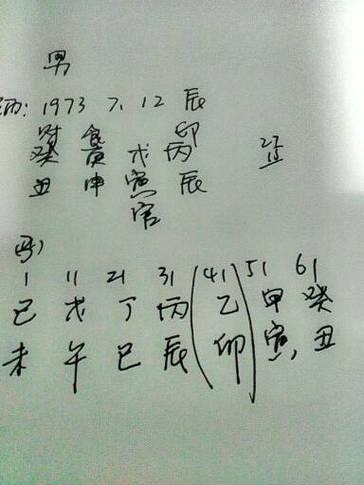 男
1973 7. 12 辰
财 食 印
癸 庚 戊 丙
丑 申 寅 辰
官
1 11 21 31 (41) 51 61
己 戊 丁 丙 乙 甲 癸
未 午 巳 辰 卯 寅, 丑